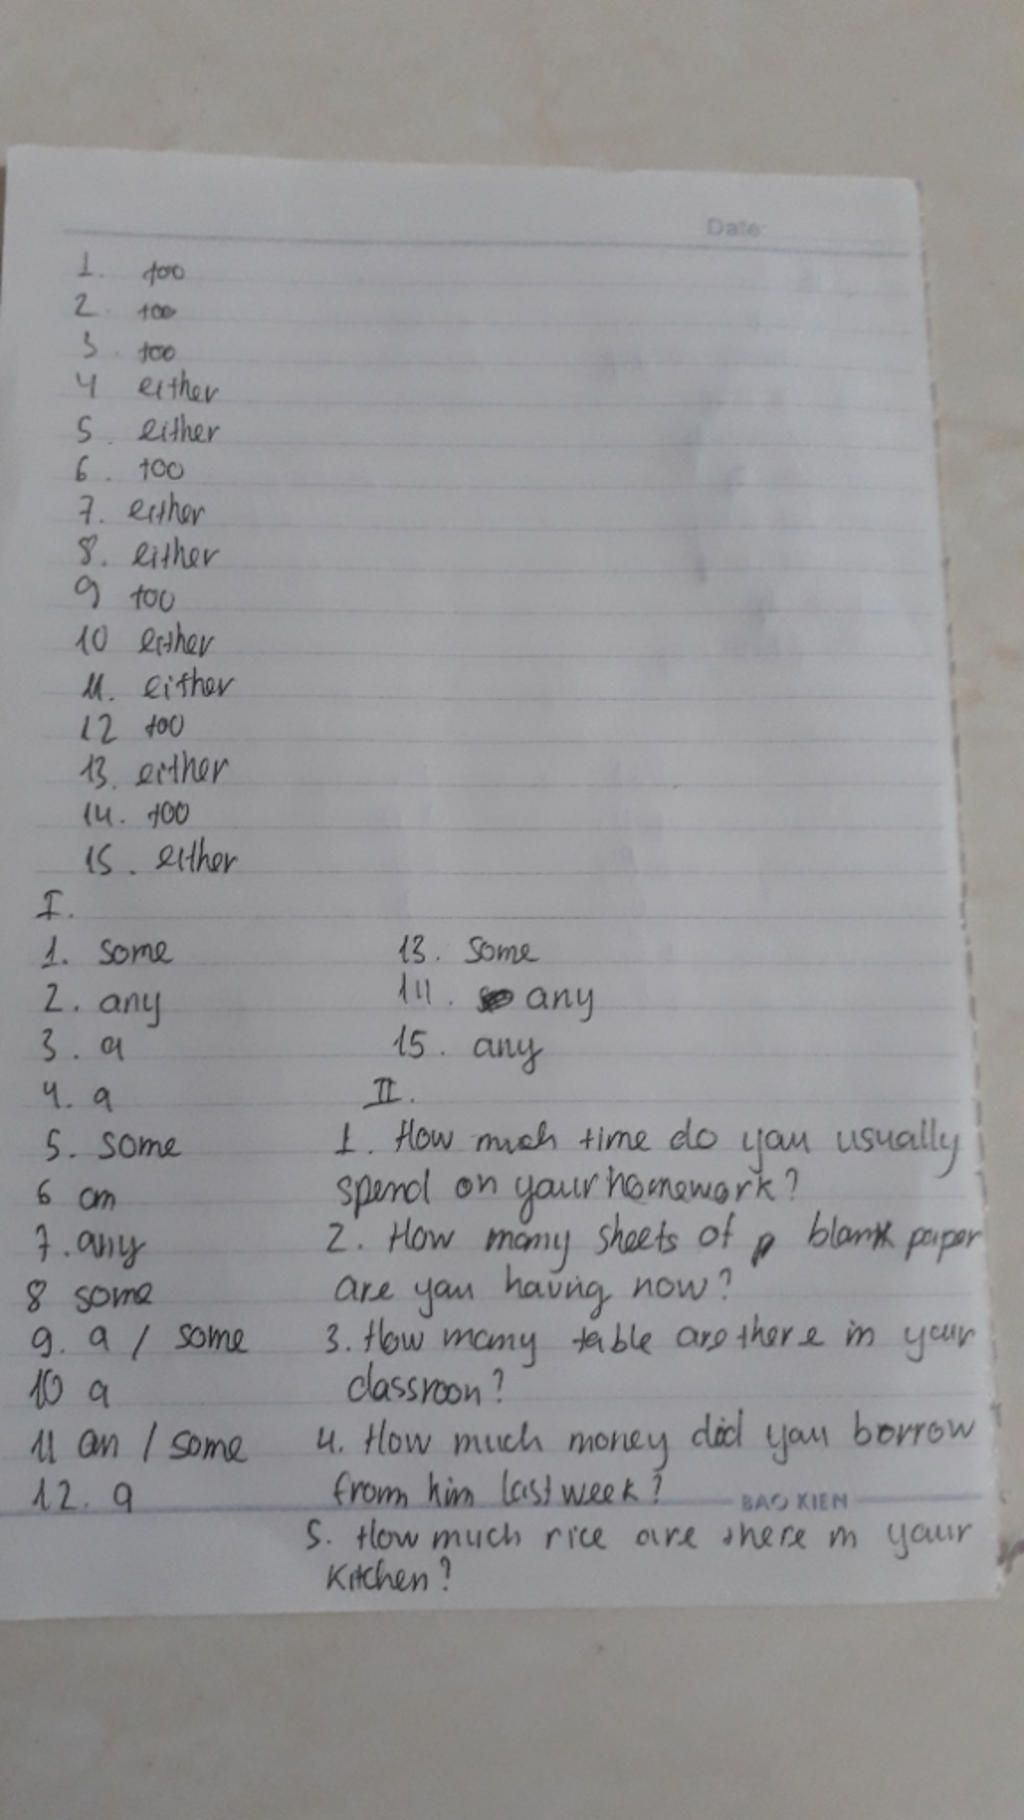 Date:
1. too
2. too
3. too
4 either
5. either
6. too
7. either
8. either
9 too
10 either
11. either
12 too
13. either
14. too
15. either
I.
1. some
2. any
3. a
4. a
5. some
6 an
7. any
8 some
9. a / some
10 a
11 an / some
12. a
13. some
14. any
15. any
II.
1. How much time do you usually
spend on your homework?
2. How many sheets of blank paper
are you having now?
3. How many table are there in your
classroon?
4. How much money did you borrow
from him last week?
BAO KIEN
5. How much rice are there in your
kitchen?